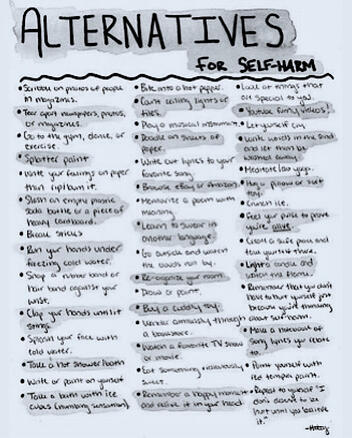 ALTERNATIVES
FOR SELF-HARM
• Scribble on photos of people
in magazines.
• Tear apart newspapers, photos,
or magazines.
• Go to the gym, dance, or
exercise.
• Splatter paint
• Write your feelings on paper
then rip/burn it.
• Slash an empty plastic
soda bottle or a piece of
heavy cardboard.
• Break sticks
• Run your hands under
freezing cold water.
• Snap a rubber band or
hair band against your
wrist.
• Clap your hands until it
stings.
• Splash your face with
cold water.
• Take a hot shower/bath
• Write or paint on yourself
• Take a bath with ice
cubes (numbing sensation)
• Bite into a hot pepper.
• Count ceiling lights or
tiles.
• Play a musical instrument.
• Doodle on sheets of
paper.
• Write out lyrics to your
favorite song
• Browse ebay or Amazon
• Memorize a poem with
meaning
• Learn to swear in
another language.
• Go outside and watch
the clouds roll by.
• Re-organize your room.
• Draw or paint.
• Buy a cuddly toy.
• Wander aimlessly through
a bookstore.
• Watch a favorite TV show
or movie.
• Eat something ridiculously
sweet.
• Remember a happy moment
and relive it in your head.
• Look at things that
are special to you.
• Youtube funny videos!
• Let yourself cry
• Write words in the sand
and let them be
washed away
• Meditate/do yoga.
• Hug a pillow or soft
toy.
• Crunch ice.
• Feel your pulse to prove
you're alive.
• Light a candle and
watch the flame.
• Remember that you don't
have to hurt yourself just
because you're thinking
about self harm.
• Make a
song lyrics you relate
to.
• Paint yourself with
red tempera paint.
• Repeat to yourself "I
don't deserve to be
hurt until you believe
it."